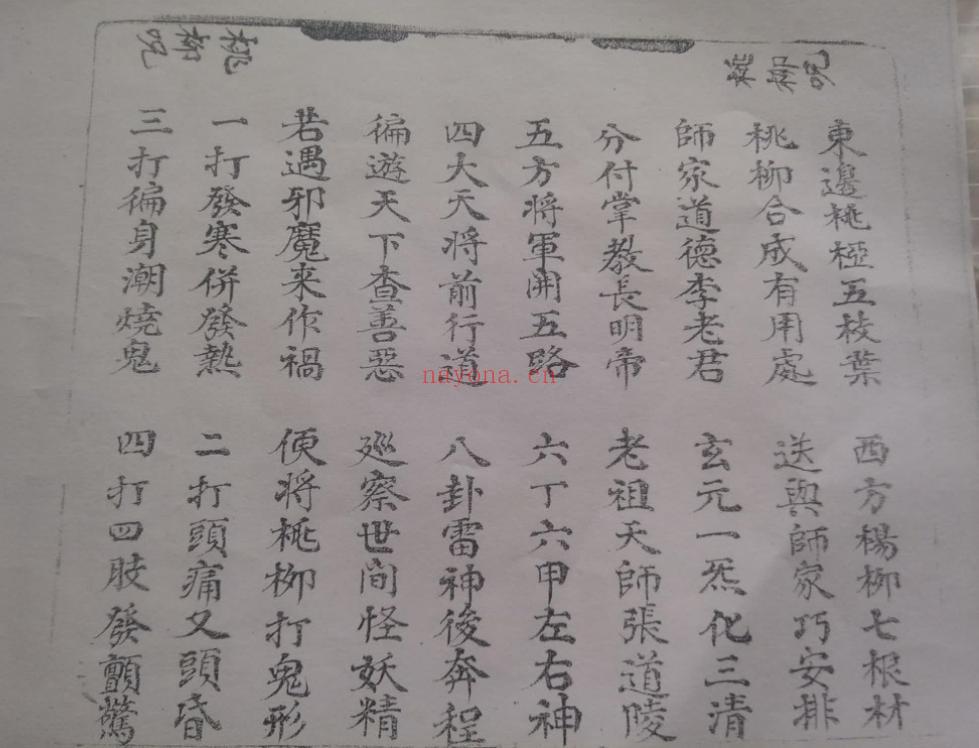 東邊桃椏五枝葉
西方楊柳七根材
桃柳合成有用處
送與師家巧安排
師家道德李老君
玄元一炁化三清
分付掌教長明帝
老祖天師張道陵
五方将軍開五路
六丁六甲左右神
四大天將前行道
八卦雷神後奔程
徧遊天下查善惡
廵察世间怪妖精
若遇邪魔来作禍
便将桃柳打鬼形
一打發寒併發熱
二打頭痛又頭昏
三打徧身潮燒鬼
四打四肢發顫驚
桃柳咒
nayona.cn